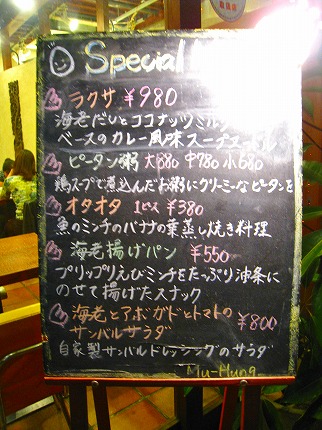 Special
ラクサ ¥980
海老だしとココナッツミルク
ベースのカレー風味スープヌードル
ピータン粥 大880 中780 小580
鶏スープで煮込んだお粥にクリーミーなピータンを
オタオタ 1ピス ¥380
魚のミンチのバナナの葉蒸し焼き料理
海老揚げパン ¥550
プリップリえびミンチをたっぷり沖条に
のせて揚げたスナック
海老とアボガドとトマトの
サンバルサラダ ¥800
自家製サンバルドレッシングのサラダ
Mu-Hung